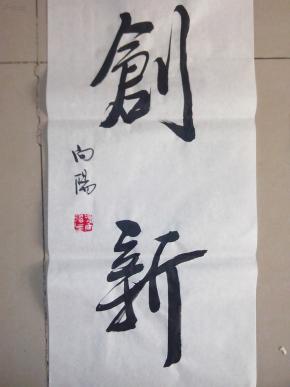 創新
向陽